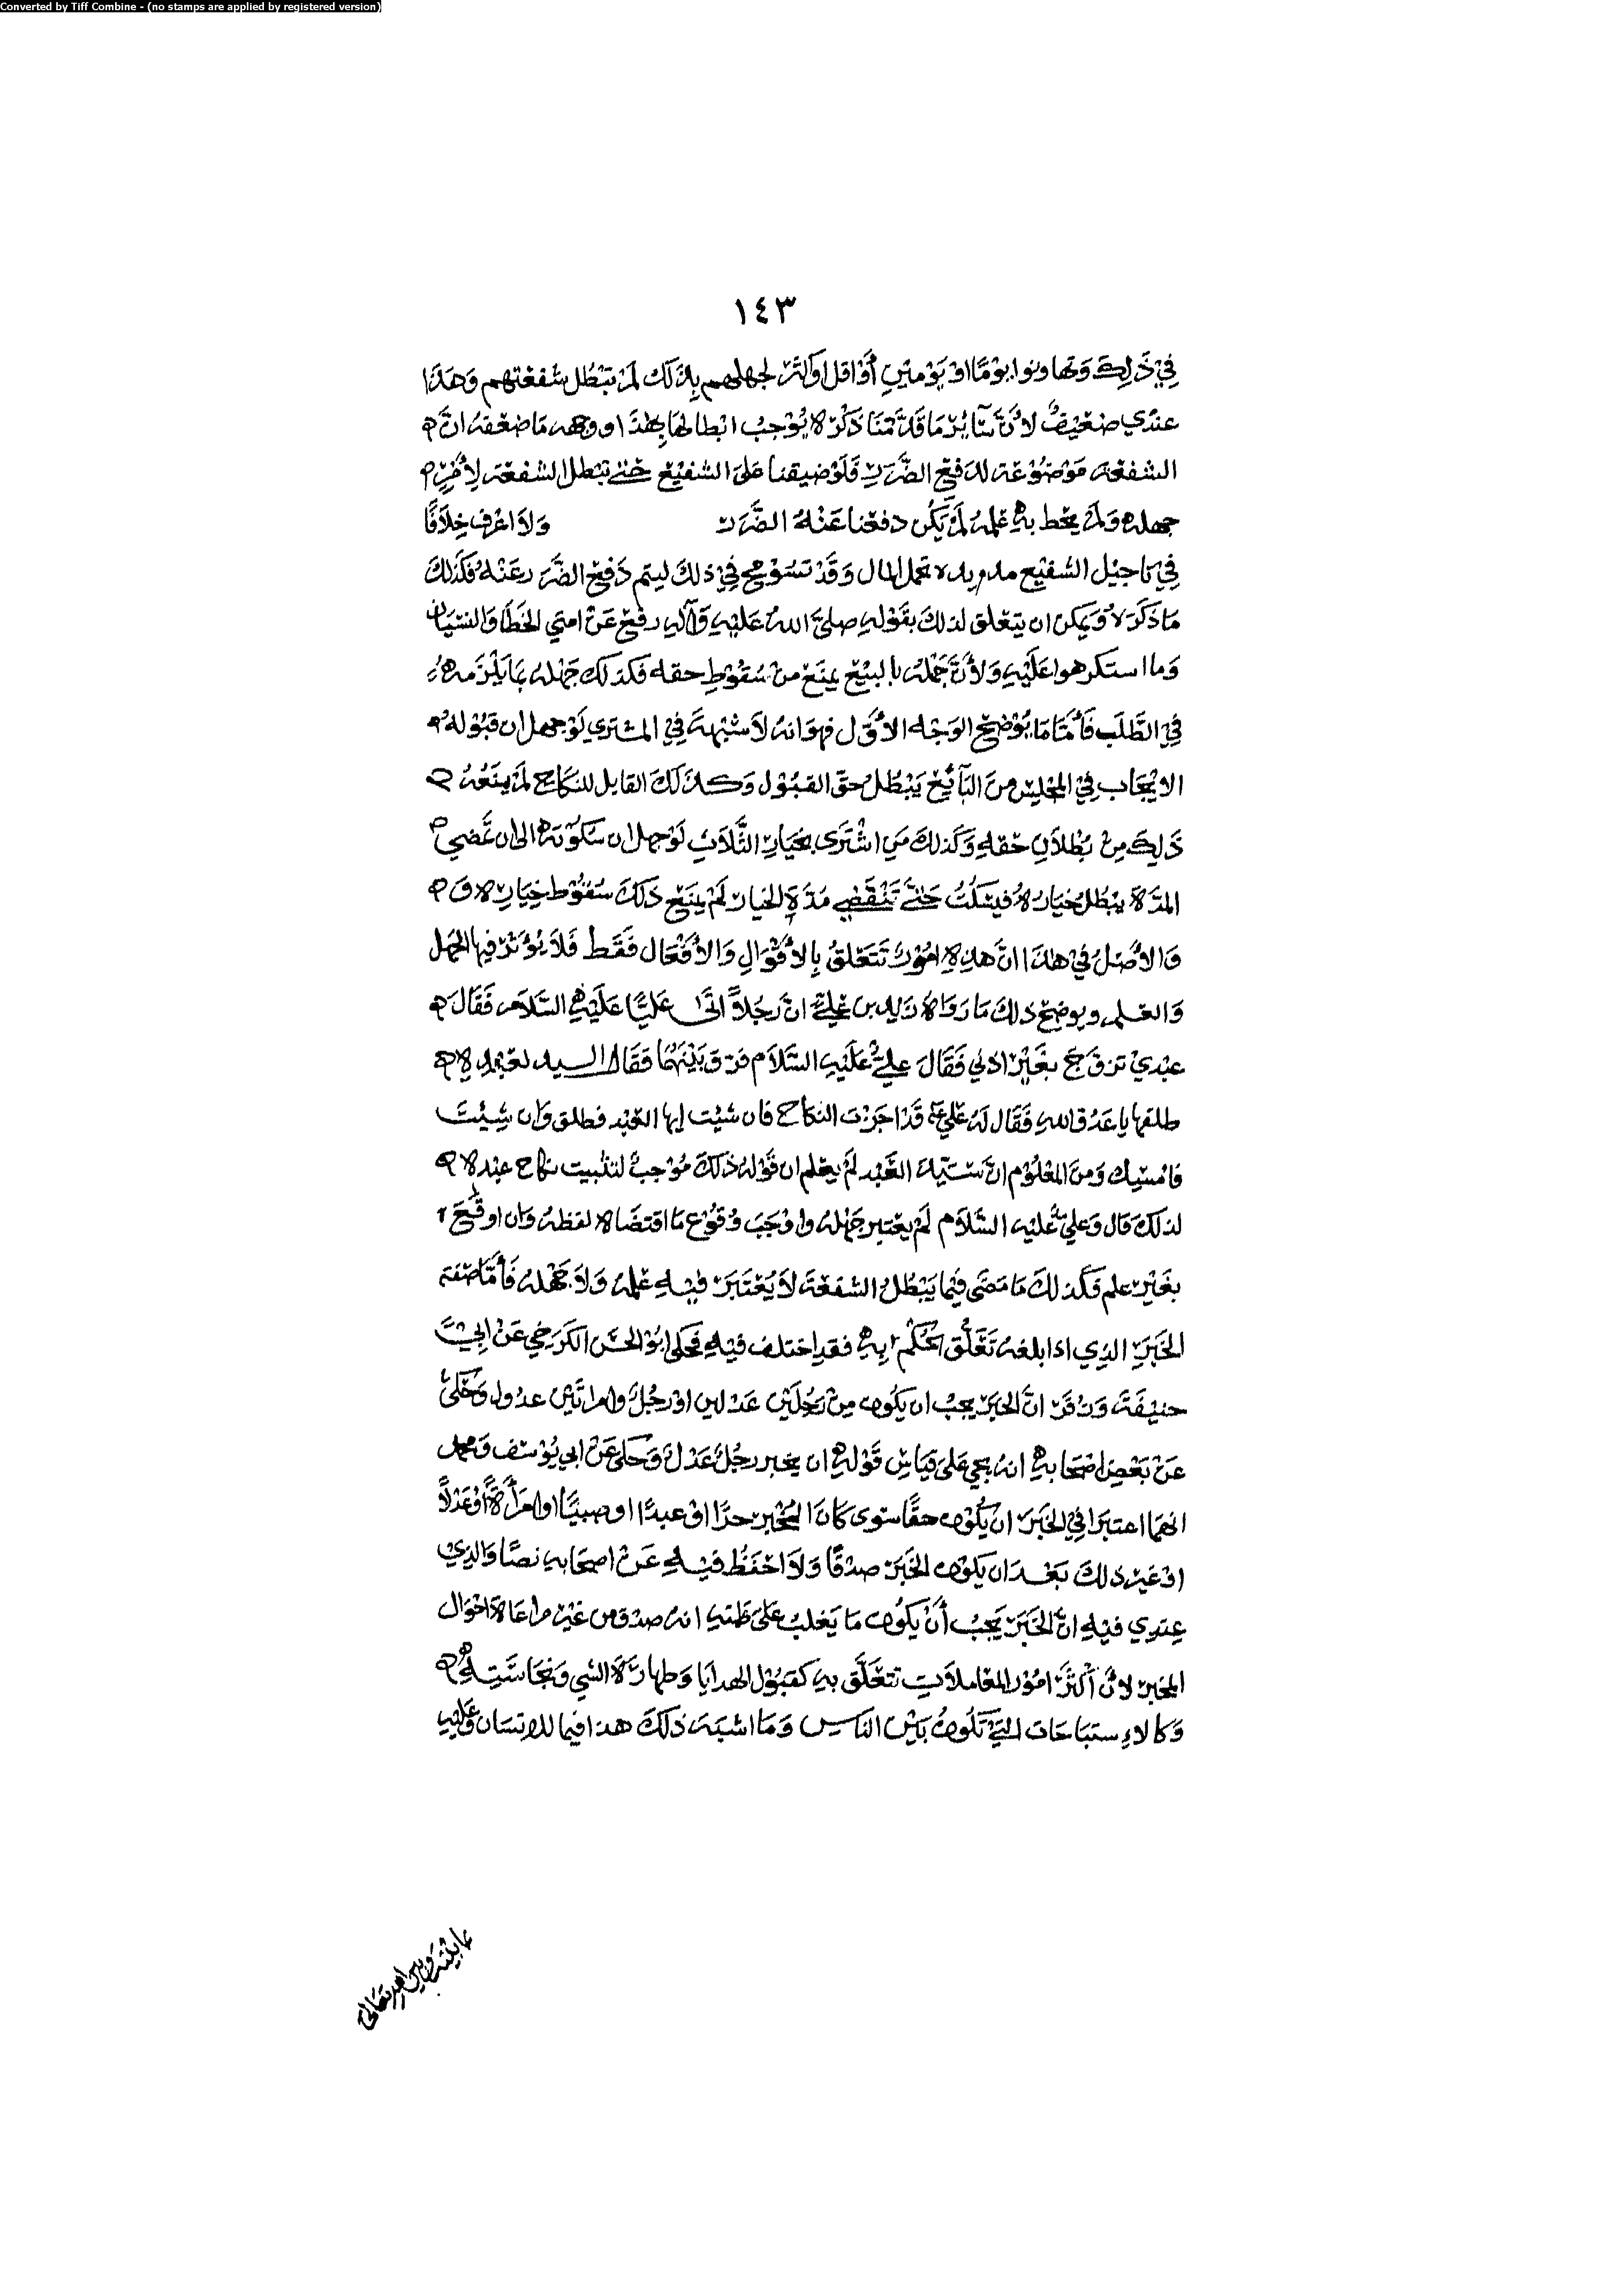 Converted by Tiff Combine - (no stamps are applied by registered version)
١٤٣
في ذلك وتهاونوا يوما او يومين أو اقل او اكثر لجهلهم بذلك لم تبطل شفعتهم وهذا
عندي ضعيف لأن سائر ما قدمنا ذكره لا يوجب ابطالها بهذا ووجه ما ضعفه ان
الشفعة موضوعة لدفع الضرر فلو ضيقنا على الشفيع حتى تبطل الشفعة لأمر
جهله ولم يحط به علمه لم يكن دفعنا عنه الضرر ولا اعرف خلافا
في تاجيل الشفيع المال وقد تسومح في ذلك ليتم دفع الضرر عنه فكذلك
ما ذكره ويمكن ان يتعلق لذلك بقوله صلى الله عليه وآله رفع عن امتي الخطأ والنسيان
وما استكرهوا عليه ولأن جهله بالبيع يمنع من سقوط حقه فكذلك جهله بما يلزمه
في الطلب فأما ما يوضح الوجه الأول فهو انه لا شبهة في المشتري لو جهل ان قبوله
الايجاب في المجلس من البائع يبطل حق القبول وكذلك القابل للنكاح لم يمنعه
ذلك من بطلان حقه وكذلك من اشترى بخيار الثلاث لو جهل ان سكوته الى ان تمضي
المدة يبطل خياره فيسكت حتى تنقضي مدة الخيار لم يمنع ذلك سقوط خياره
والأصل في هذا ان هذه امور تتعلق بالأقوال والأفعال فقط فلا يؤثر فيها الجهل
والعلم ويوضح ذلك ما رواه زيد بن علي ان رجلا اتى عليا عليه السلام فقال
عبدي تزوج بغير اذني فقال علي عليه السلام فرق بينهما فقال السيد لعبده
طلقها يا عدو الله فقال له علي قد اجزت النكاح فان شئت ايها العبد فطلق وان شئت
فامسك ومن المعلوم ان سيد العبد لم يعلم ان قوله ذلك موجب لتثبيت نكاح عبده
لذلك قال وعلي عليه السلام لم يعتبر جهله واوجب وقوع ما اقتضاه لفظه وان اوقع
بغير علم فكذلك ما مضى فيما يبطل الشفعة لا يعتبر فيه علمه ولا جهله فأما صفة
الخبر الذي اذا بلغه تعلق الحكم به فقد اختلف فيه فحكى ابو الحسن الكرخي عن ابي
حنيفة وزفر ان الخبر يجب ان يكون من رجلين عدلين او رجل وامراتين عدول وحكى
عن بعض اصحابه انه يجي على قياس قوله ان يخبر رجل عدل وحكى عن ابي يوسف ومحمد
انهما اعتبرا في الخبر ان يكون حقا سوى كان المخبر حرا او عبدا او صبيا او امرأة او عدلا
او غير ذلك بعد ان يكون الخبر صدقا ولا احفظ فيه عن اصحابه نصا والذي
عندي فيه ان الخبر يجب أن يكون ما يغلب على ظنه انه صدق من غير مراعاة احوال
المخبر لان أكثر امور المعاملات تتعلق به كقبول الهدايا وطهارة الشي ونجاسته
وكالاستباحات التي تكون بين الناس وما اشبه ذلك هذا فيما للانسان وعليه